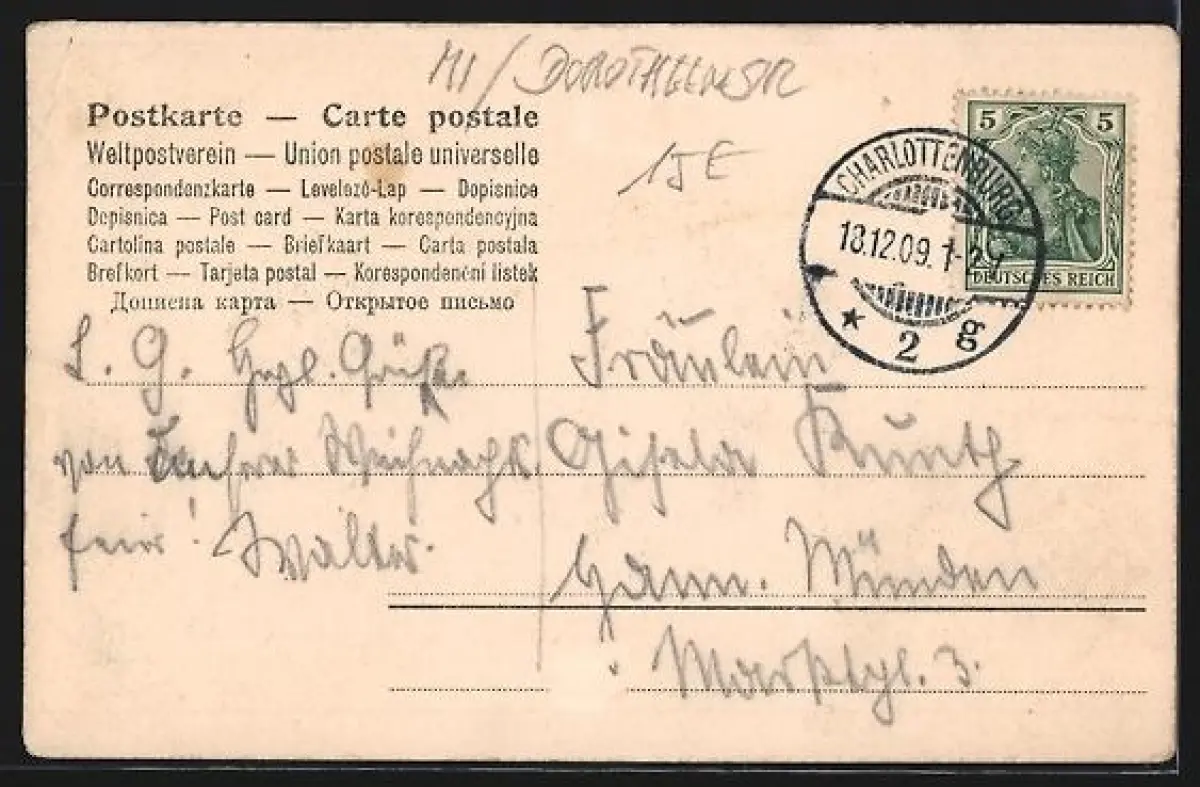 M1/DOROTHEENSTR
15E
Postkarte — Carte postale
Weltpostverein — Union postale universelle
Correspondenzkarte — Levelező-Lap — Dopisnice
Dopisnica — Post card — Karta korespondencyjna
Cartolina postale — Briefkaart — Carta postala
Brefkort — Tarjeta postal — Korespondenční listek
Дописна карта — Открытое письмо
5 5
DEUTSCHES REICH
CHARLOTTENBURG
18.12.09. 1-2
* 2 g
L. G. Hzgl. Grüße
von unserer Weihnachts
feier! Walter.
Fräulein
Gisela Kunth
Hann. Münden
Marktpl. 3.